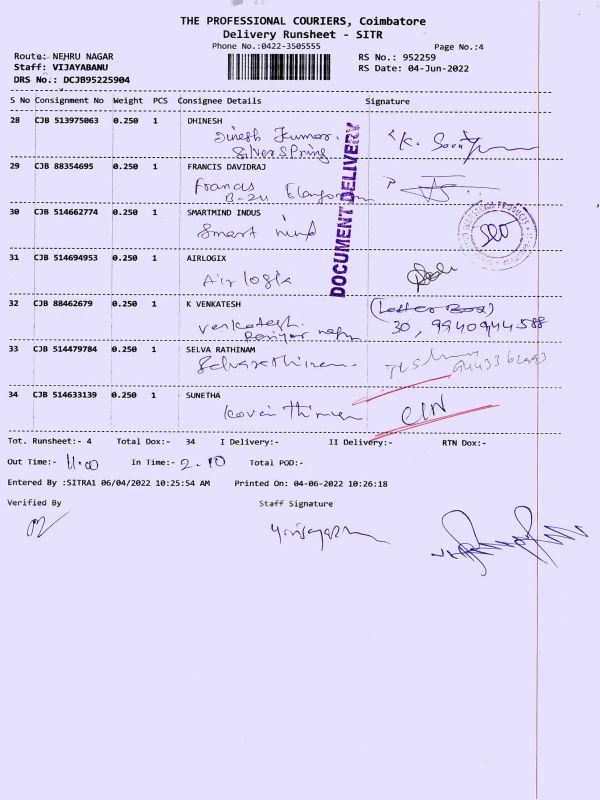 THE PROFESSIONAL COURIERS, Coimbatore
Delivery Runsheet - SITR
Phone No.:0422-3505555
Page No.:4
Route: NEHRU NAGAR
RS No.: 952259
Staff: VIJAYABANU
RS Date: 04-Jun-2022
DRS No.: DCJB95225904
S No Consignment No Weight PCS Consignee Details Signature
28 CJB 513975063 0.250 1 DHINESH
Dinesh Kumar.
Silver Spring
29 CJB 88354695 0.250 1 FRANCIS DAVIDRAJ
Francis
30 CJB 514662774 0.250 1 SMARTMIND INDUS
Smart mind
31 CJB 514694953 0.250 1 AIRLOGIX
Air logix
32 CJB 88462679 0.250 1 K VENKATESH
(Letter Box)
Venkatesh.
30, 9940944588
33 CJB 514479784 0.250 1 SELVA RATHINAM
Selvarathinam
34 CJB 514633139 0.250 1 SUNETHA
DOCUMENT DELIVERY
Tot. Runsheet:- 4 Total Dox:- 34 I Delivery:- II Delivery:- RTN Dox:-
Out Time:- 11.00 In Time:- 2.10 Total POD:-
Entered By :SITRA1 06/04/2022 10:25:54 AM Printed On: 04-06-2022 10:26:18
Verified By Staff Signature